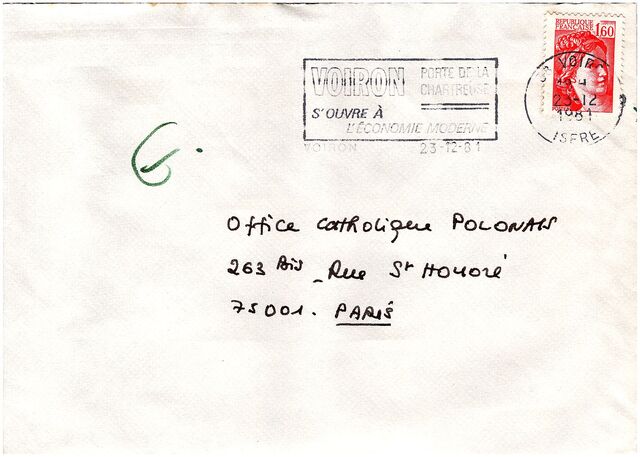 REPUBLIQUE
FRANÇAISE 1,60
VOIRON
PORTE DE LA
CHARTREUSE
S'OUVRE À
L'ÉCONOMIE MODERNE
VOIRON 23-12-81
VOIRON
23-12
1981
ISERE
Office Catholique POLONAIS
263 Bis - Rue St Honoré
75001. PARIS